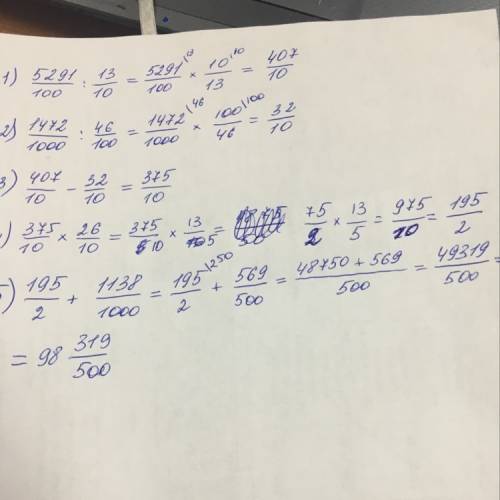 1) 5291/100 : 13/10 = 5291/100 |13 × 10/13 |10 = 407/10
2) 1472/1000 : 46/100 = 1472/1000 |46 × 100/46 |100 = 32/10
3) 407/10 - 32/10 = 375/10
) 375/10 × 26/10 = 375/10 × 13/5 = 75/2 × 13/5 = 975/10 = 195/2
5) 195/2 + 1138/1000 = 195/2 |250 + 569/500 = 48750 + 569/500 = 49319/500 =
= 98 319/500